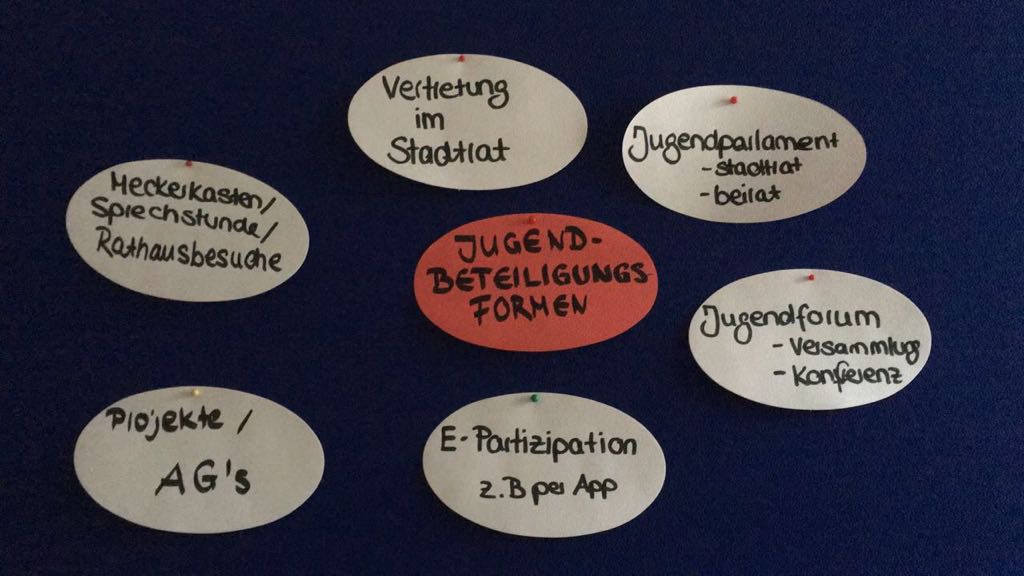 Vertretung
im
Stadtrat
Jugendparlament
-stadtrat
-beirat
Meckerkasten/
Sprechstunde/
Rathausbesuche
JUGEND-
BETEILIGUNGS
FORMEN
Jugendforum
- Versammlug
- Konferenz
Projekte /
AG's
E-Partizipation
z.B per App